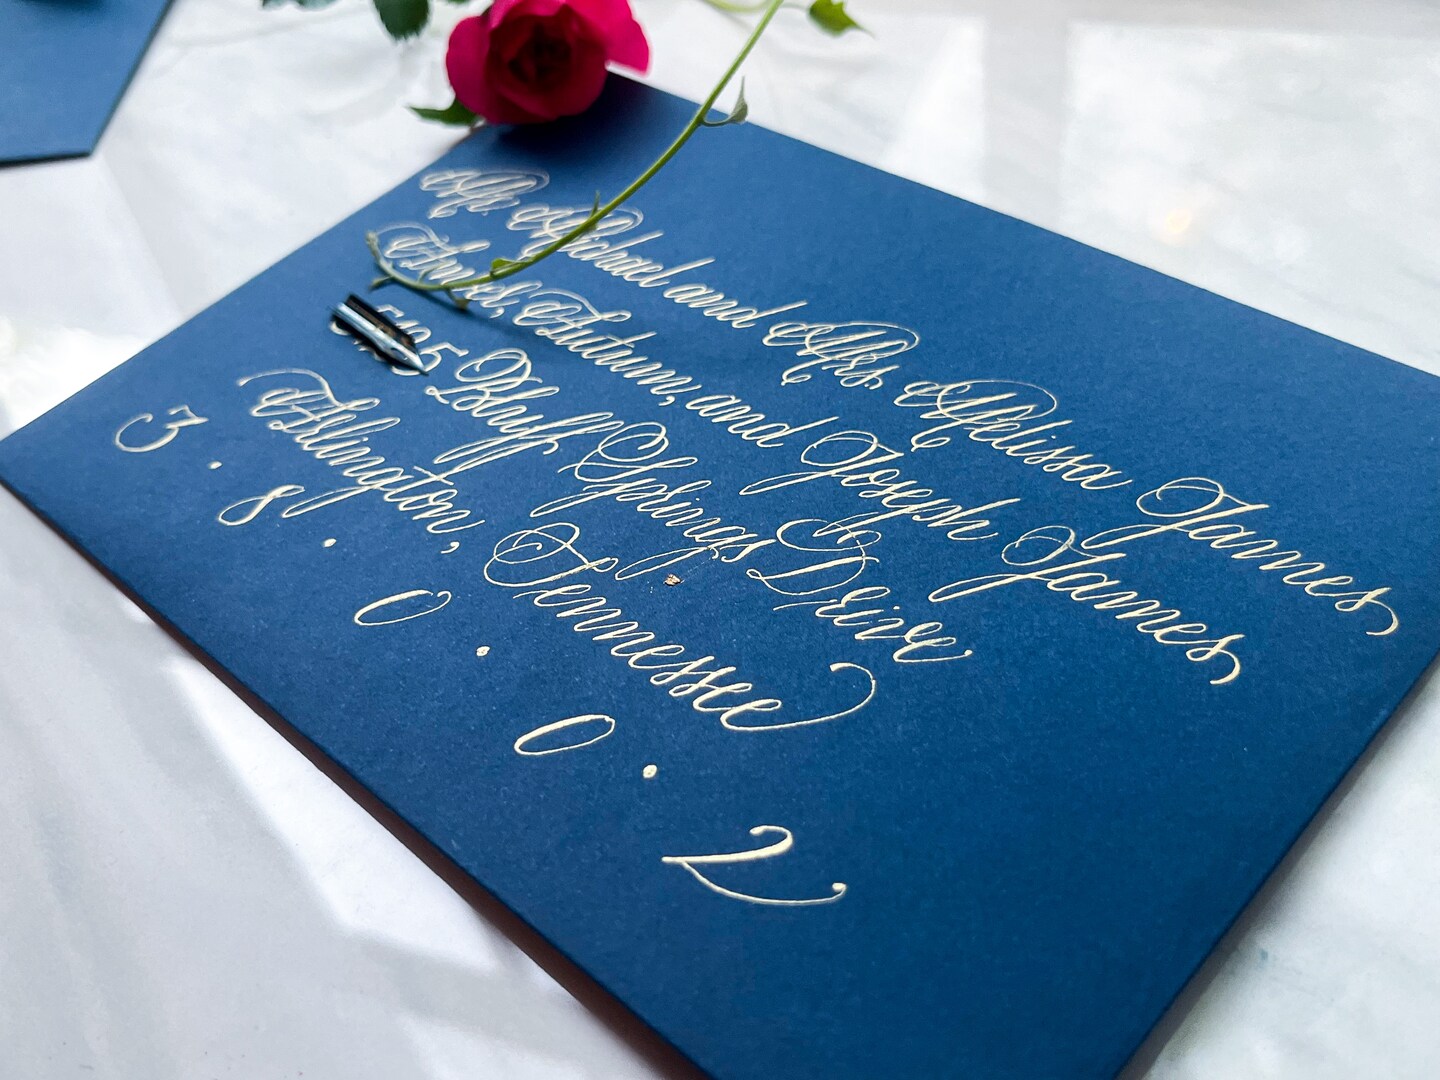 Mr. Michael and Mrs. Melissa James,
Autumn, and Joseph James,
Bluff Springs Drive
Arlington, Tennessee
3 . 8 . 0 . 0 . 2